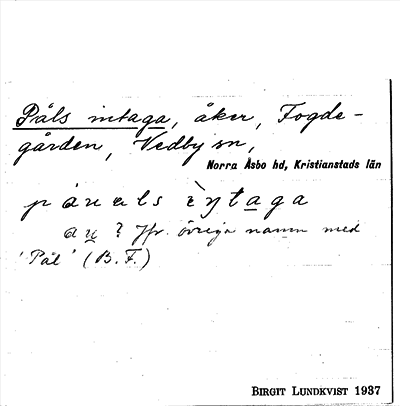 Påls intaga, åker, Fogde-
gården, Vedby sn,
Norra Åsbo hd, Kristianstads län
påu̯els ìŋtaga
au̯ ? Jfr. övriga namn med
'Pål' (B. F.)
BIRGIT LUNDKVIST 1937